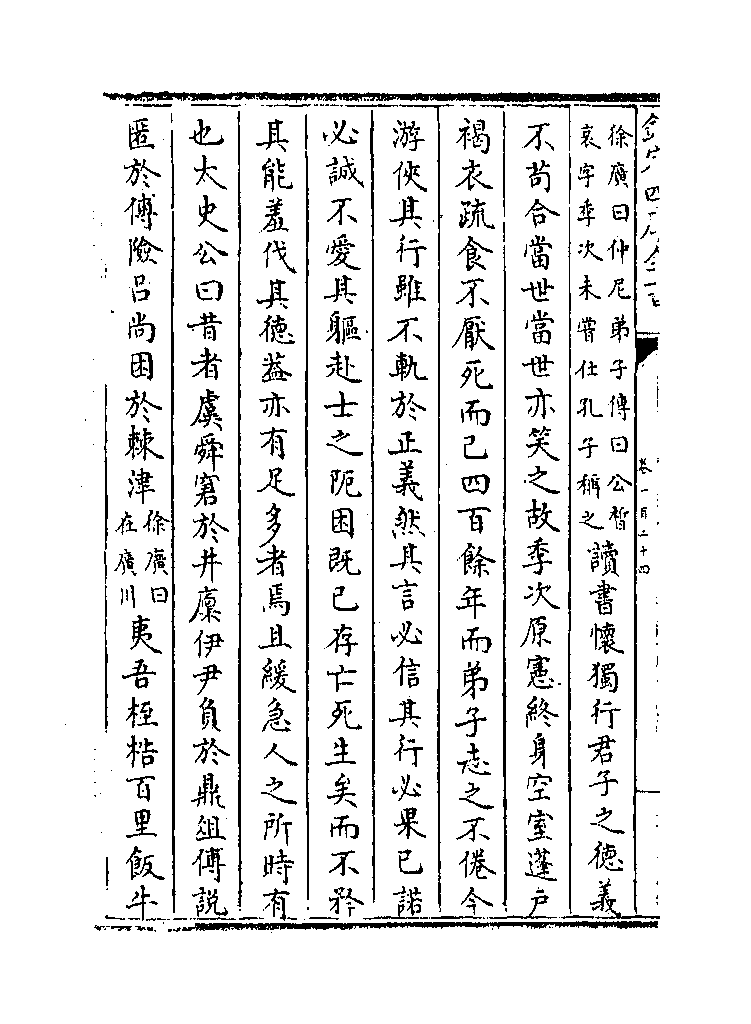 徐廣曰仲尼弟子傳曰公皙
哀字季次未嘗仕孔子稱之
讀書懷獨行君子之德義
不苟合當世當世亦笑之故季次原憲終身空室蓬户
褐衣疏食不厭死而已四百餘年而弟子志之不倦今
游俠其行雖不軌於正義然其言必信其行必果已諾
必誠不愛其軀赴士之阨困既已存亡死生矣而不矜
其能羞伐其德葢亦有足多者焉且緩急人之所時有
也太史公曰昔者虞舜窘於井廩伊尹負於鼎俎傅説
匿於傅險吕尚困於棘津
徐廣曰
在廣川
夷吾桎梏百里飯牛
卷一百二十四